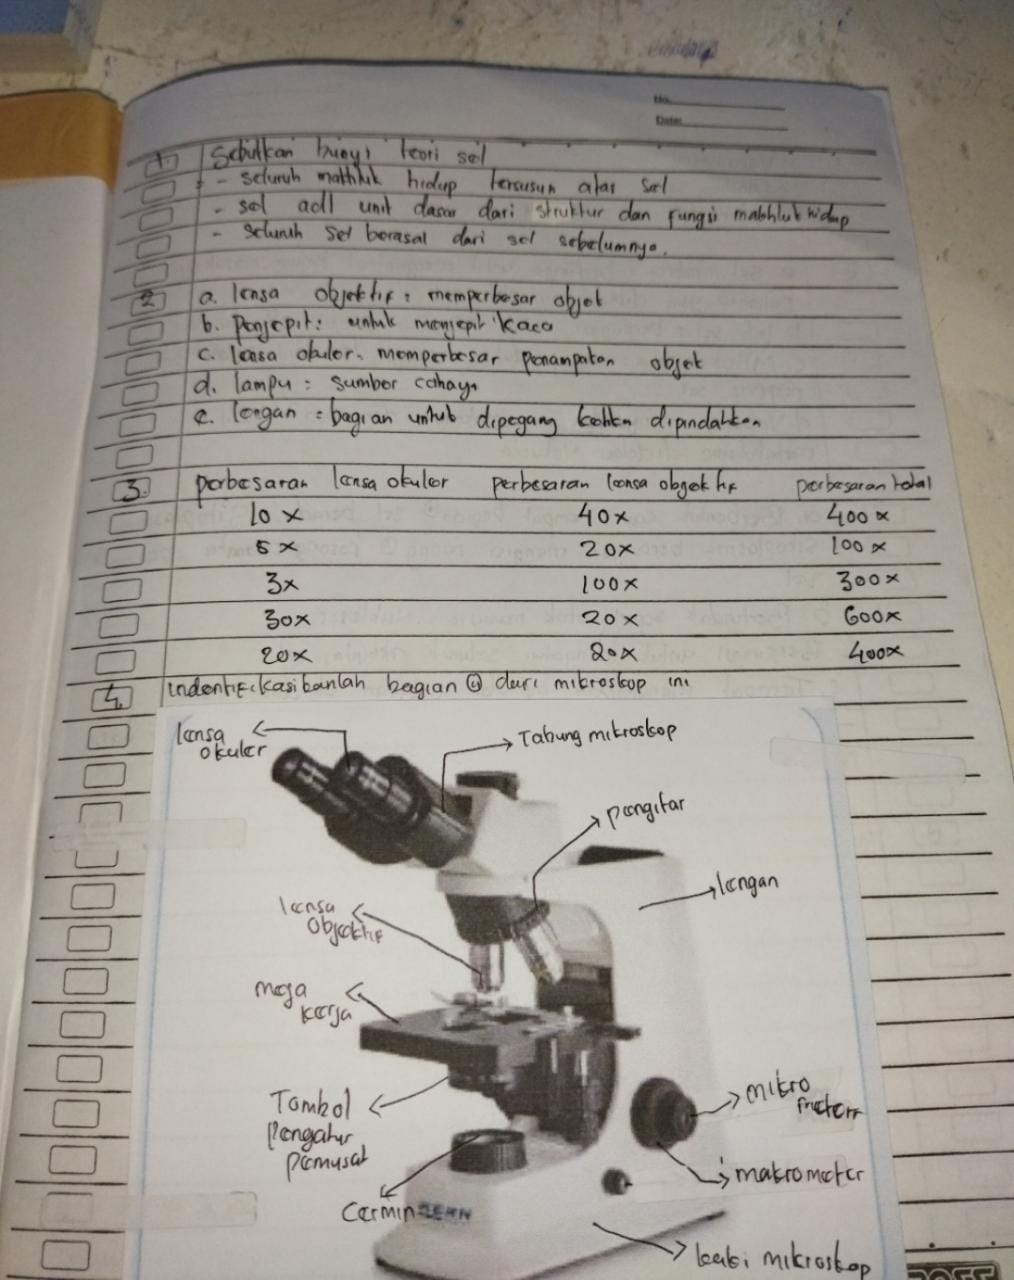 No.
Date:
1. Sebutkan bunyi teori sel
- seluruh makhluk hidup tersusun atas sel
- sel adl unit dasar dari struktur dan fungsi makhluk hidup
- seluruh sel berasal dari sel sebelumnya.
2. a. lensa objektif : memperbesar objek
b. Penjepit : untuk menjepit kaca
c. lensa okuler : memperbesar penampakan objek
d. lampu : sumber cahaya
e. lengan : bagian untuk dipegang ketika dipindahkan
3. perbesaran lensa okuler perbesaran lensa objektif perbesaran total
10 x 40x 400x
5 x 20x 100x
3x 100x 300x
30x 20x 600x
20x 20x 400x
4. indentifikasikanlah bagian @ dari mikroskop ini
lensa okuler
Tabung mikroskop
pengitar
lengan
lensa objektif
meja kerja
Tombol pengatur pemusat
mikro meter
makrometer
Cermin
ZERN
kaki mikroskop